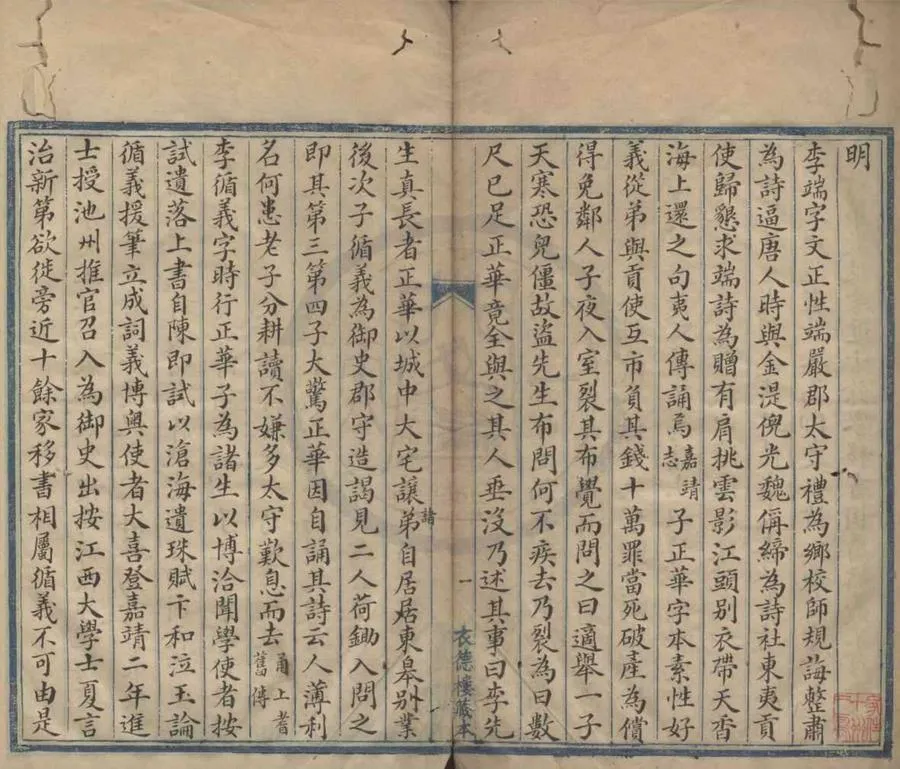 明
李端字文正性端嚴郡太守禮為鄉校師規誨整肅
為詩逼唐人時與金湜倪光魏偁締為詩社東夷貢
使歸懇求端詩為贈有肩挑雲影江頭别衣帶天香
海上還之句夷人傳誦焉嘉靖志子正華字本素性好
義從弟與貢使互市負其錢十萬罪當死破產為償
得免鄰人子夜入室裂其布覺而問之曰適舉一子
天寒恐兒僵故盜先生布問何不疾去乃裂為曰數
尺已足正華竟全與之其人垂沒乃述其事曰李先
生真長者正華以城中大宅讓諸弟自居居東皋别業
後次子循義為御史郡守造謁見二人荷鋤入問之
即其第三第四子大驚正華因自誦其詩云人薄利
名何患老子分耕讀不嫌多太守歎息而去甬上耆舊傳
李循義字時行正華子為諸生以博洽聞學使者按
試遺落上書自陳即試以滄海遺珠賦卞和泣玉論
循義援筆立成詞義博奧使者大喜登嘉靖二年進
士授池州推官召入為御史出按江西大學士夏言
治新第欲徙旁近十餘家移書相屬循義不可由是
一
衣德樓藏本